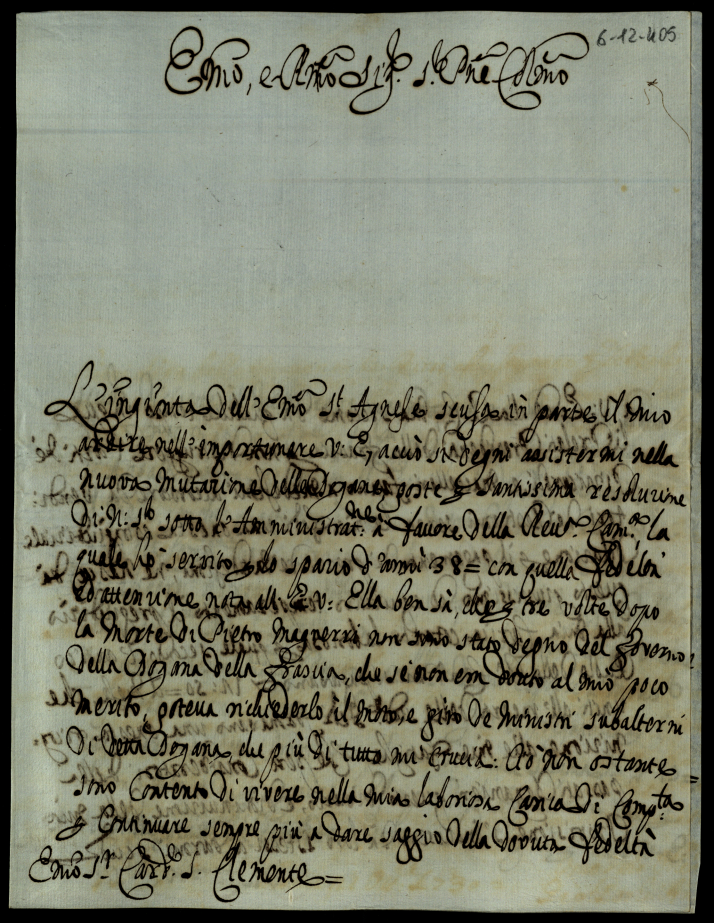 6-12-405
Emo, e Rmo Sig.r S.r Pne Colmo
L'ingiunta dell'Emo S.t Agnese scusa in parte il mio
ardire nell'importunare V: E, acciò si degni assistermi nella
nuova mutazione delle Dogane poste p Santissima resoluzione
Di N: S.re sotto l'Amministrat.ne à favore della Reu.a Cam.a la
quale hò servito p lo spazio d'anni 38= con quella fedeltà
ed attenzione nota all'E V: Ella ben sà, che p tre volte dopo
la morte di Pietro non sono stato degno del Governo
della Dogana della Grascia, che se non era dovuto al mio poco
merito, poteva richiederlo il moto, e giro de Ministri subalterni
di detta Dogana, che più di tutto mi cruccia: Ciò non ostante =
sono contento di vivere nella mia laboriosa Carica di Comp.ta
p continuare sempre più a dare saggio della dovuta fedeltà
Emo S.r Card.e S. Clemente =